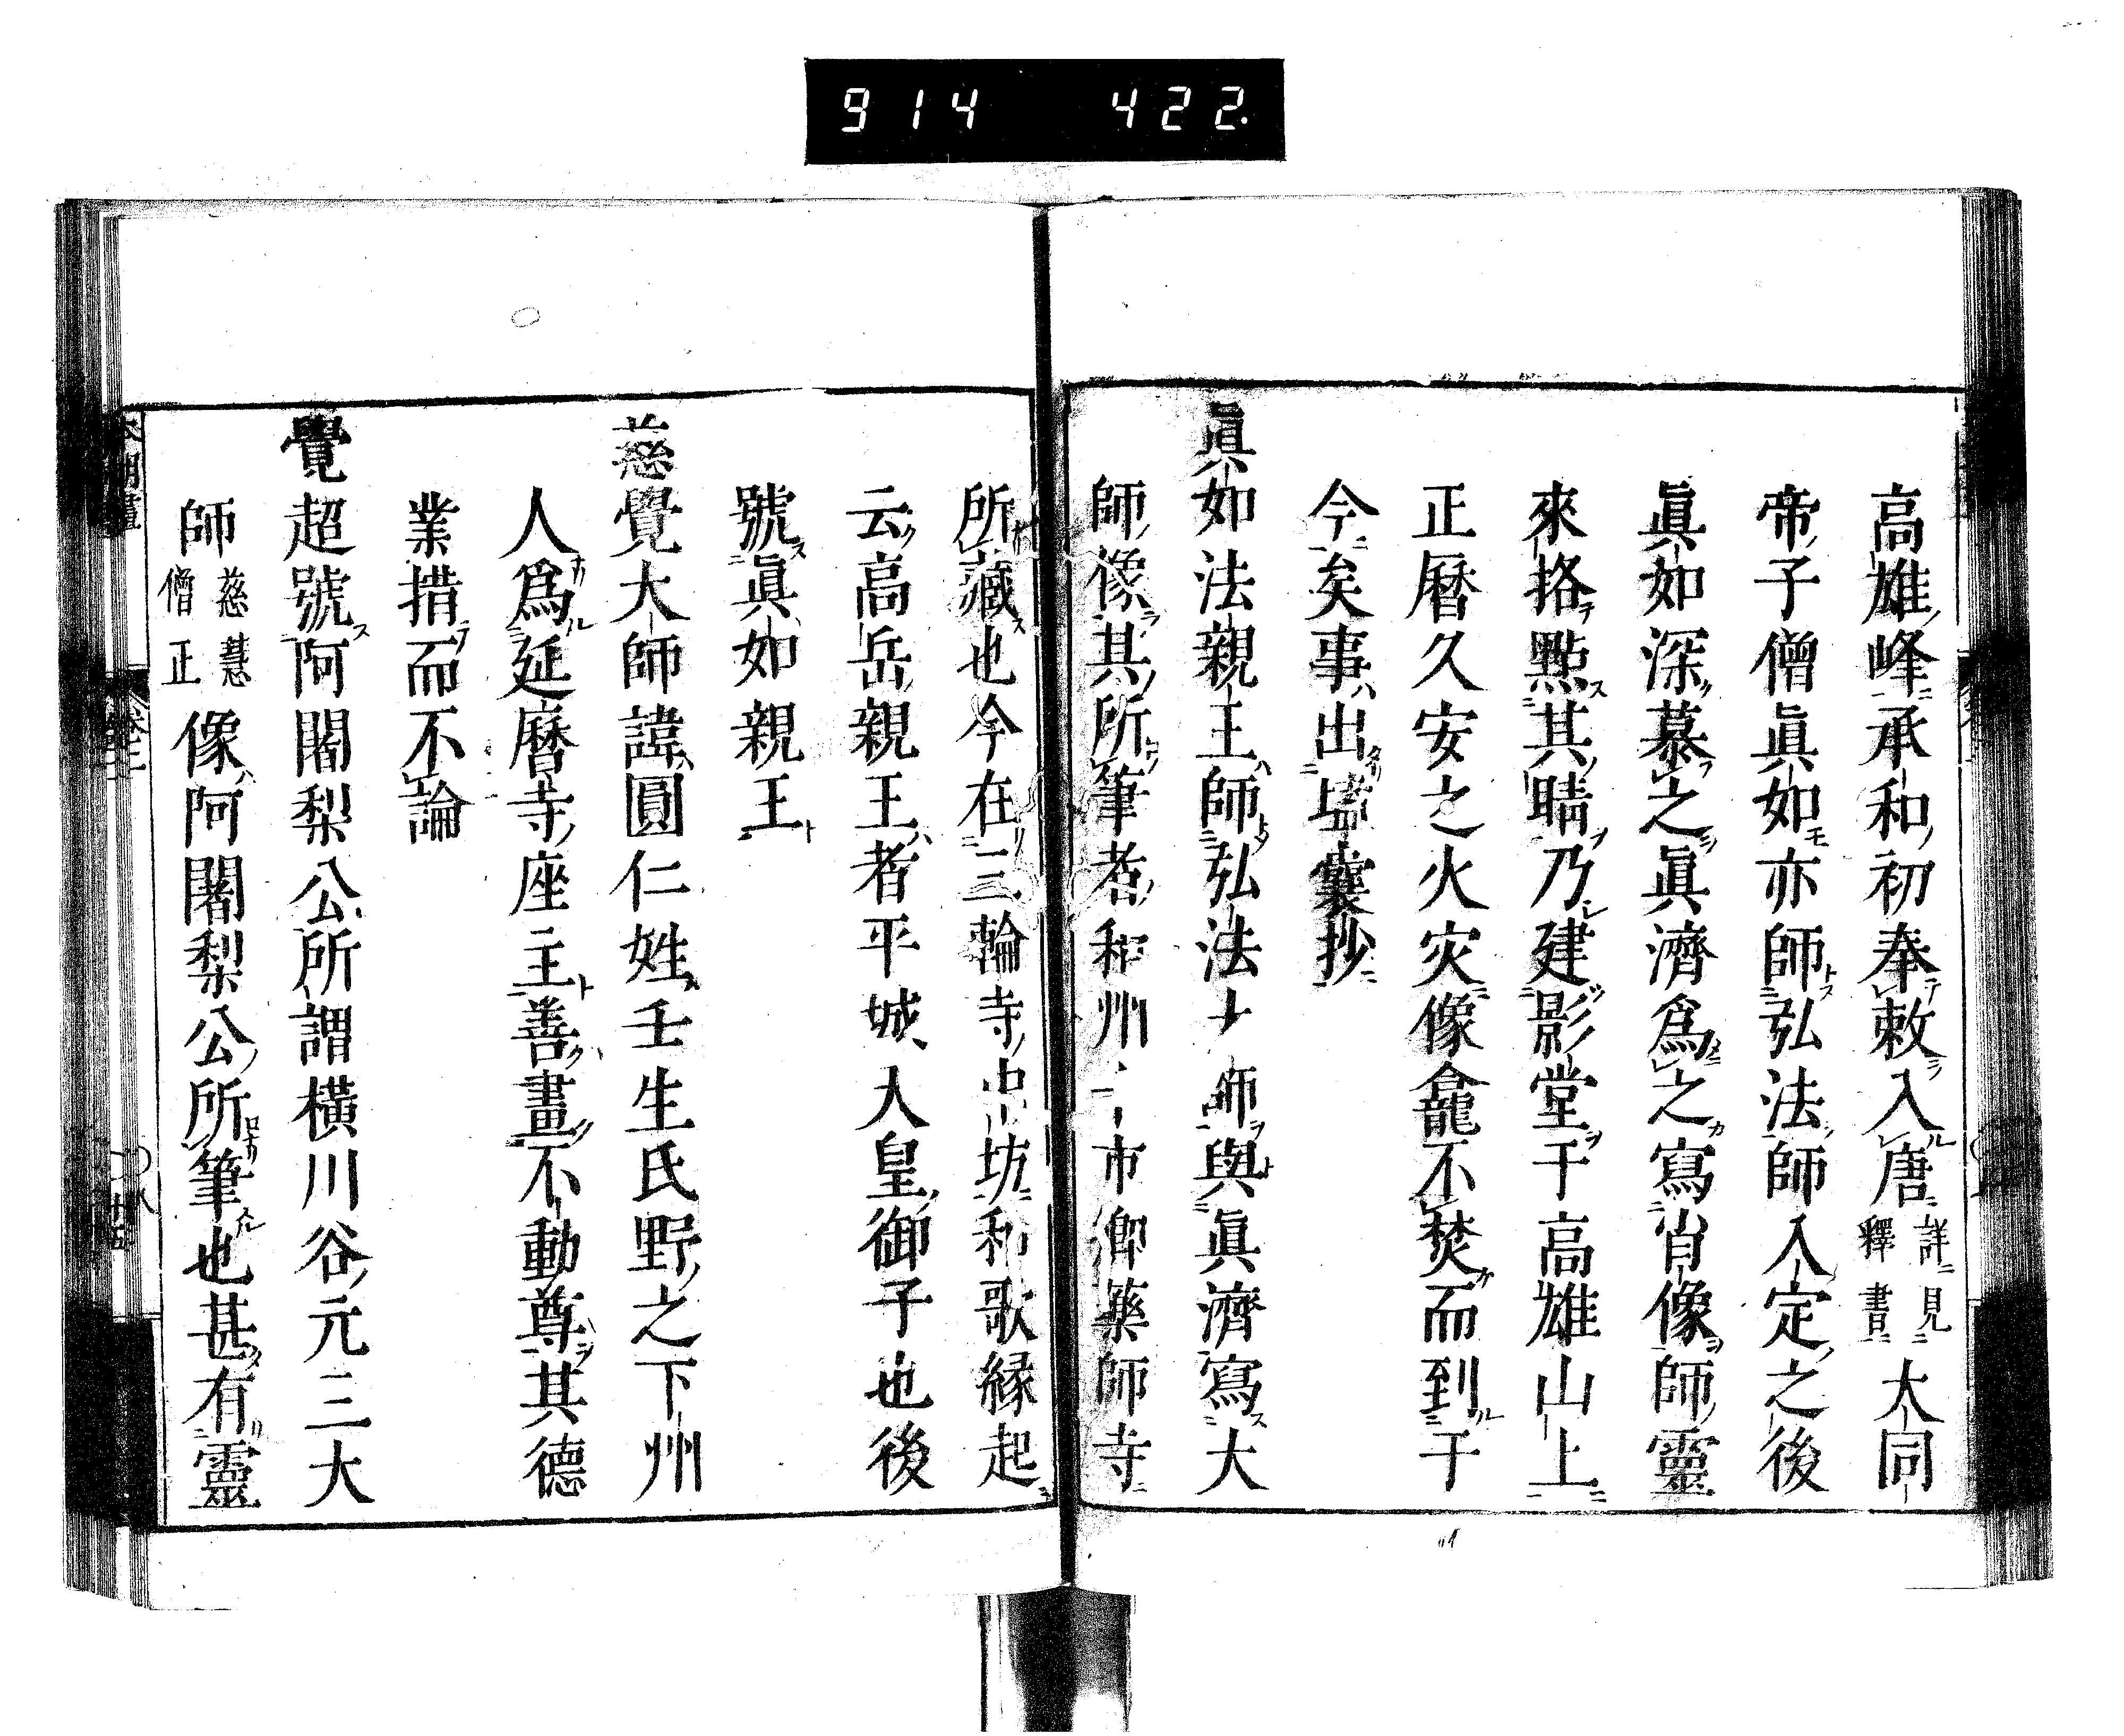 914 422.
高雄峰承和初奉敕入唐詳見釋書大同
帝子僧眞如亦師弘法師入定之後
眞如深慕之眞濟爲之寫肖像師靈
來格點其睛乃建影堂于高雄山上
正曆久安之火灾像龕不焚而到于
今矣事出壒囊抄
眞如法親王師弘法大師與眞濟寫大
師像其所筆者和州十市鄉藥師寺
所藏也今在三輪寺中坊和歌緣起
云高岳親王者平城人皇御子也後
號眞如親王
慈覺大師諱圓仁姓壬生氏野之下州
人爲延曆寺座主善畫不動尊其德
業措而不論
覺超號阿闍梨公所謂橫川谷元三大
師慈慧僧正像阿闍梨公所筆也甚有靈